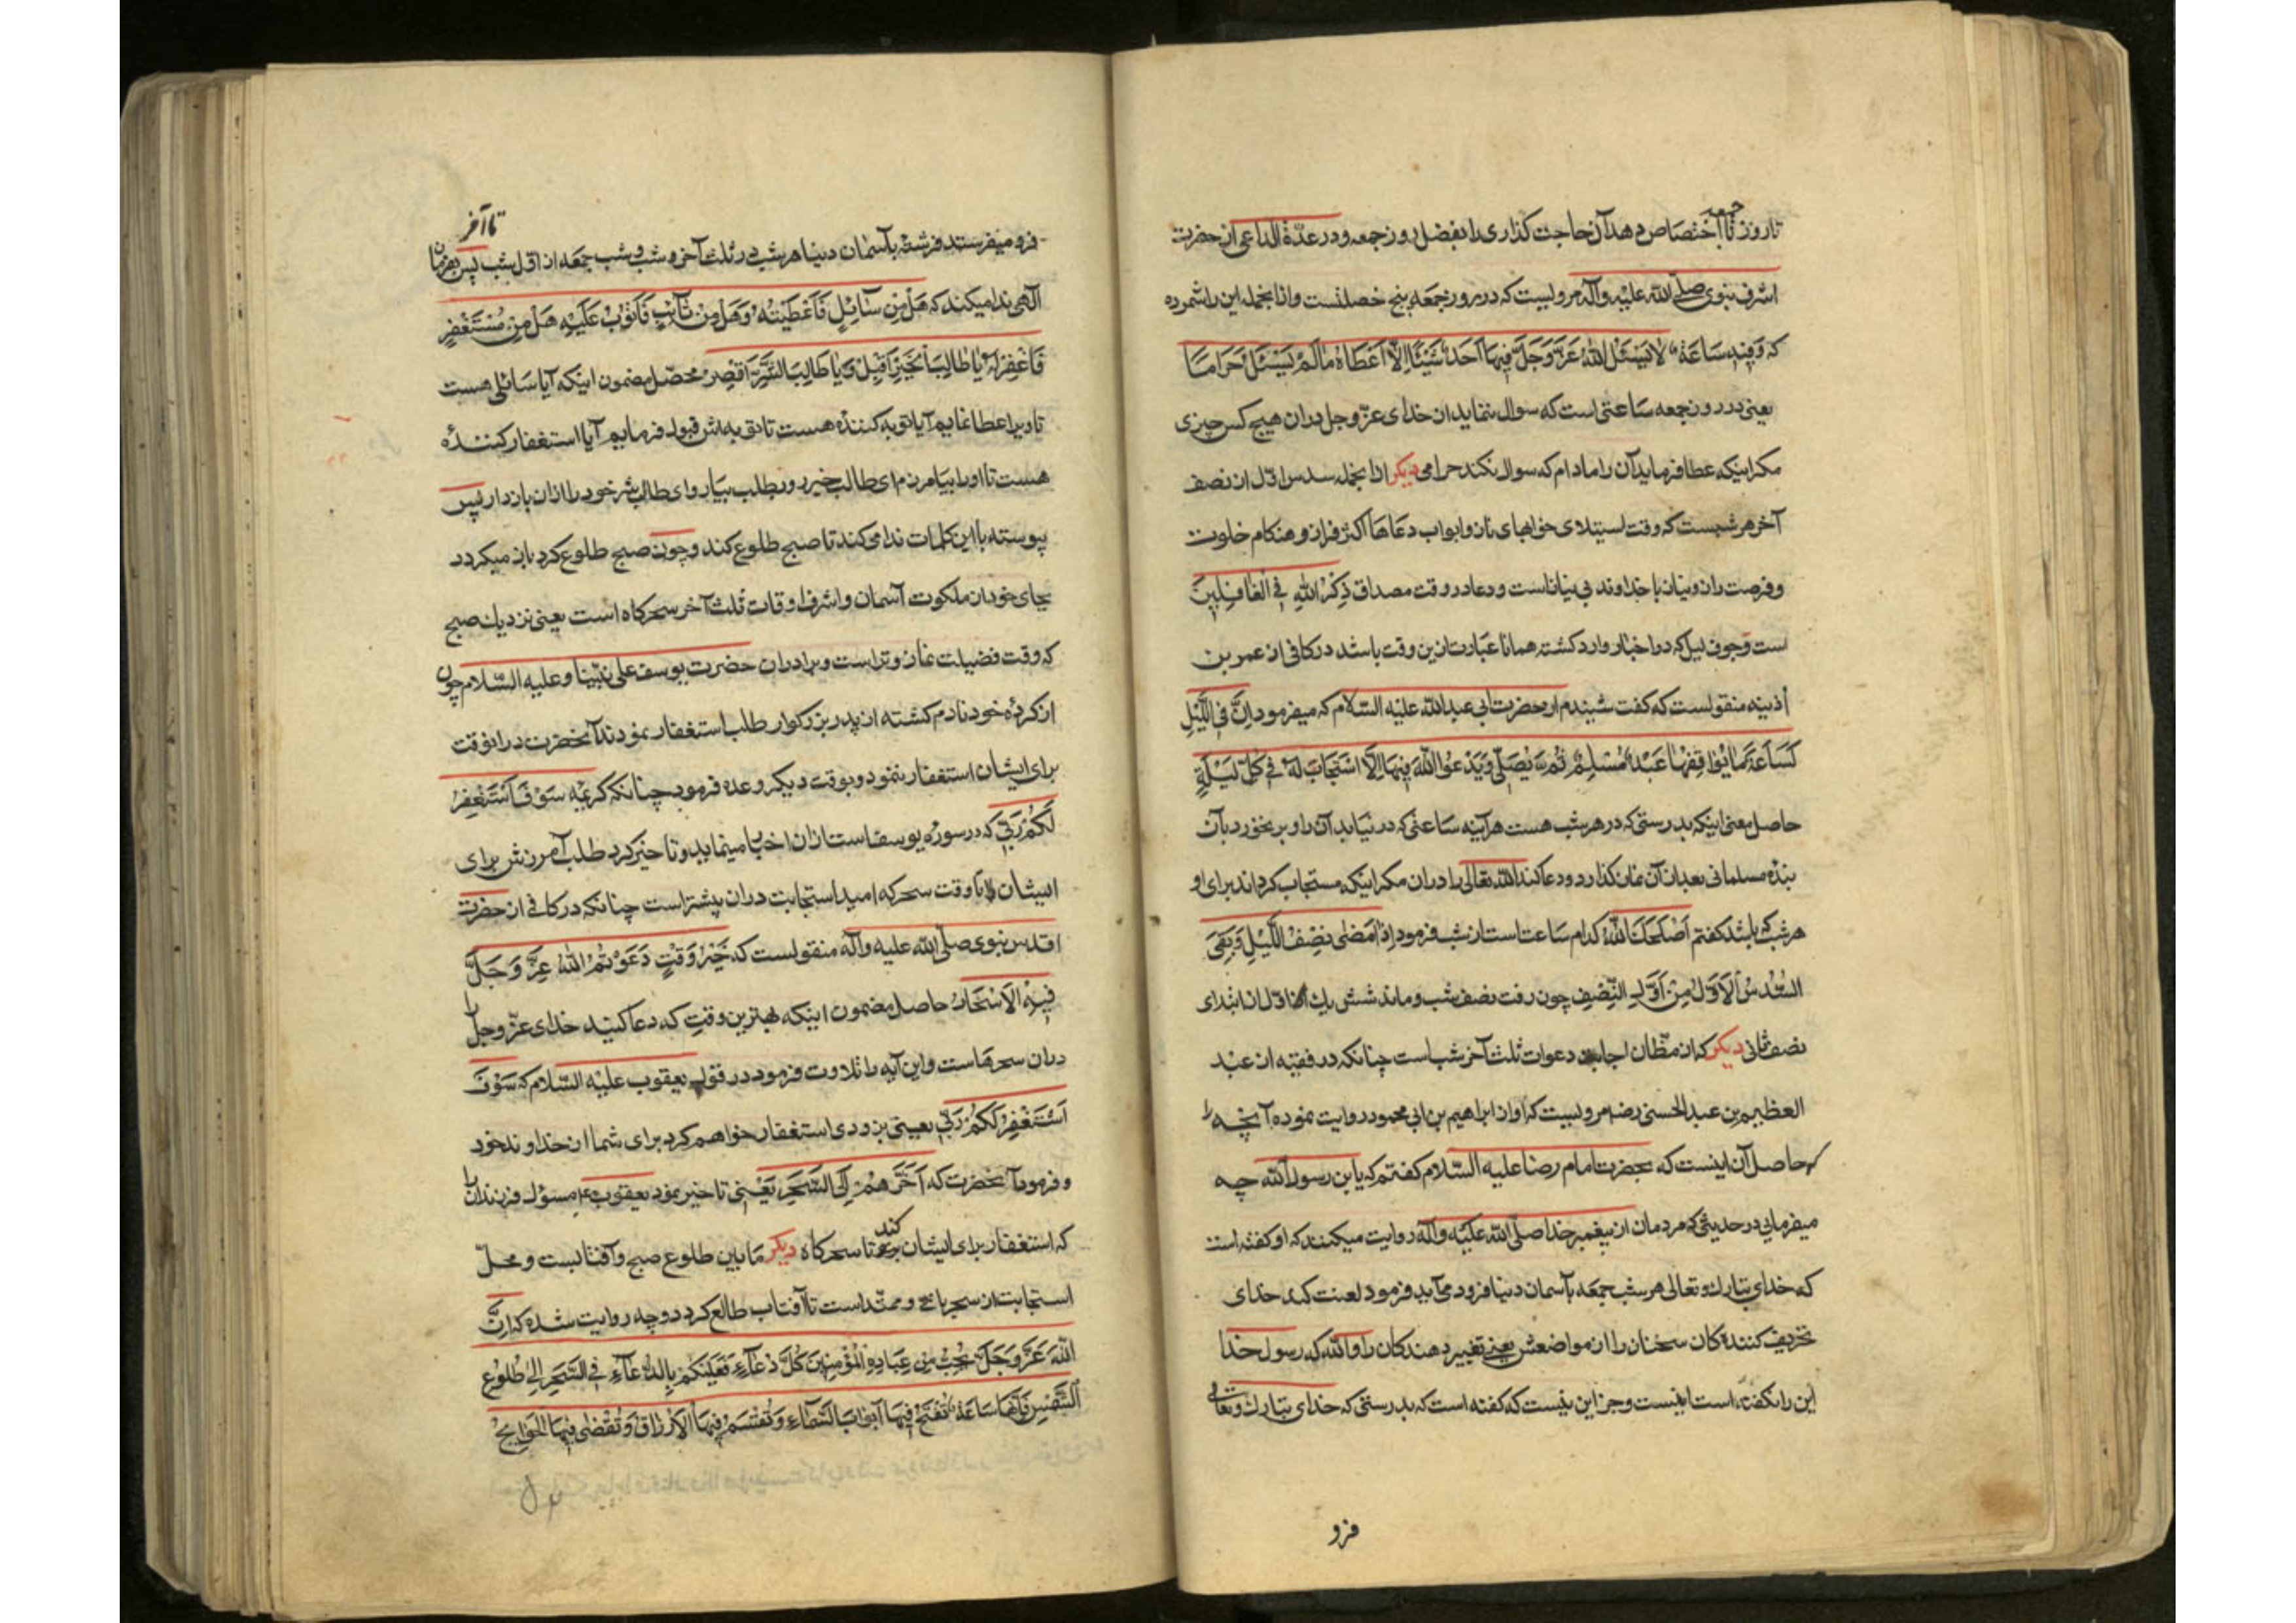 تا روز جمعه تا اختصاص دهد آن حاجت گذاری را بفضل روز جمعه و در عدّة الداعی از حضرت
اشرف نبوی صلّی الله علیه وآله مرویست که در روز جمعه پنج خصلتست و از انجمله این را شمرده
که وَفیهِ سَاعَةٌ لَا یَسْئَلُ اللهَ عَزَّ وَجَلَّ فِیهَا اَحَدٌ شَیْئًا اِلَّا اَعْطَاهُ مَا لَمْ یَسْئَلْ حَرَامًا
یعنی در روز جمعه ساعتی است که سوال ننماید از خدای عزّ وجل دران هیچ کس چیزی
مکر اینکه عطا فرماید آن را مادام که سوال نکند حرامی دیکر از انجمله سدس اوّل از نصف
آخر هر شبست که وقت استیلای خوابهای ناز و ابواب دعاها اکثر فراز و هنکام خلوت
و فرصت راز و نیاز با خداوند بی نیاز است و دعا در وقت مصداق ذِکْرُ اللهِ فِی الْغَافِلِینَ
است و جوف لیل که در اخبار وارد کشته همانا عبارت ازین وقت باشد در کافی از عمر بن
اُذینه منقولست که کفت شنیدم از حضرت ابی عبد الله علیه السّلام که میفرمود اِنَّ فِی اللَّیْلِ
لَسَاعَةً مَا یُوَافِقُهَا عَبْدٌ مُسْلِمٌ ثُمَّ یُصَلِّی وَیَدْعُو اللهَ فِیهَا اِلَّا اسْتَجَابَ لَهُ فِی کُلِّ لَیْلَةٍ
حاصل معنی اینکه بدرستی که در هر شب هست هرآینه ساعتی که در نیابد آن را و بر نخورد بآن
بندهٔ مسلمانی بعد ازان نماز کذارد و دعا کند الله تعالی را دران مکر اینکه مستجاب کرداند برای او
هر شب که باشد کفتم اَصْلَحَكَ اللهُ کدام ساعت است از شب فرمود اِذَا مَضَی نِصْفُ اللَّیْلِ وَبَقِیَ
السُّدُسُ الْاَوَّلُ مِنْ اَوَّلِ النِّصْفِ چون رفت نصف شب و ماند شش یك اوّل از ابتدای
نصف ثانی دیکر که از مظانّ اجابت دعوات ثلث آخر شب است چنانکه در فقیه از عبد
العظیم بن عبد الله الحسنی رضا مرویست که او از ابراهیم بن ابی محمود روایت نموده آنچه را
که حاصل آن اینست که بحضرت امام رضا علیه السّلام کفتم که یا بن رسول الله چه
میفرمایی در حدیثی که مردمان از پیغمبر خدا صلّی الله علیه وآله روایت میکنند که او کفته است
که خدای تبارك و تعالی هر شب جمعه بآسمان دنیا فرود می آید فرمود لعنت کند خدای
تحریف کنندکان سخنان را از مواضعش یعنی تغییر دهندکان را والله که رسول خدا
این را نکفته است اینست و جز این نیست که کفته است که بدرستی که خدای تبارك و تعالی
فرو
فرو میفرستد فرشتهٔ بآسمان دنیا هر شب در ثلث آخر و شب جمعه از اوّل شب تا آخر پس بفرمان
الهی ندا میکند که هَلْ مِنْ سَائِلٍ فَاُعْطِیَهُ وَهَلْ مِنْ تَائِبٍ فَاَتُوبَ عَلَیْهِ هَلْ مِنْ مُسْتَغْفِرٍ
فَاَغْفِرَ لَهُ یَا طَالِبَ الْخَیْرِ اَقْبِلْ وَیَا طَالِبَ الشَّرِّ اَقْصِرْ محصّل مضمون اینکه آیا سائلی هست
تا ویرا عطا نمایم آیا توبه کنندهٔ هست تا توبه اش قبول فرمایم آیا استغفار کنندهٔ
هست تا او را بیامرزم ای طالب خیر رو بطلب بیار و ای طالب شر خود را ازان باز دار پس
پیوسته با این کلمات ندا می کند تا صبح طلوع کند و چون صبح طلوع کرد باز میکردد
بجای خود از ملکوت آسمان و اشرف اوقات ثلث آخر سحرکاه است یعنی نزدیك صبح
که وقت فضیلت نماز وتر است و برادران حضرت یوسف علی نبیّنا وعلیه السّلام چون
از کردهٔ خود نادم کشته از پدر بزرکوار طلب استغفار نمودند آنحضرت در انوقت
برای ایشان استغفار ننمود و بوقت دیکر وعده فرمود چنانکه کریمه سَوْفَ اَسْتَغْفِرُ
لَکُمْ رَبِّی که در سوره یوسف است ازان اخبار مینماید و تاخیر کرد طلب آمرزش برای
ایشان را تا وقت سحر که امید استجابت دران بیشتر است چنانکه در کافی از حضرت
اقدس نبوی صلّی الله علیه وآله منقولست که خَیْرُ وَقْتٍ دَعَوْتُمُ اللهَ عَزَّ وَجَلَّ
فِیهِ الْاَسْحَارُ حاصل مضمون اینکه بهترین وقت که دعا کنید خدای عزّ وجل را
دران سحرهاست و این آیه را تلاوت فرمود در قول یعقوب علیه السّلام که سَوْفَ
اَسْتَغْفِرُ لَکُمْ رَبِّی یعنی بزودی استغفار خواهم کرد برای شما از خداوند خود
و فرمود آنحضرت که اَخَّرَهُمْ اِلَی السَّحَرِ یعنی تاخیر نمود یعقوب مسؤل فرزندان را
که استغفار برای ایشان کند تا سحرکاه دیکر ما بین طلوع صبح و آفتابست و محلّ
استجابت از سحر باقی و ممتدّ است تا آفتاب طالع کردد و چه روایت شده که اِنَّ
اللهَ عَزَّ وَجَلَّ یُحِبُّ مِنْ عِبَادِهِ الْمُؤْمِنِینَ کُلَّ دَعَّاءٍ فَعَلَیْکُمْ بِالدُّعَاءِ فِی السَّحَرِ اِلَی طُلُوعِ
الشَّمْسِ فَاِنَّهَا سَاعَةٌ تُفْتَحُ فِیهَا اَبْوَابُ السَّمَاءِ وَتُقْسَمُ فِیهَا الْاَرْزَاقُ وَتُقْضَی فِیهَا الْحَوَائِجُ